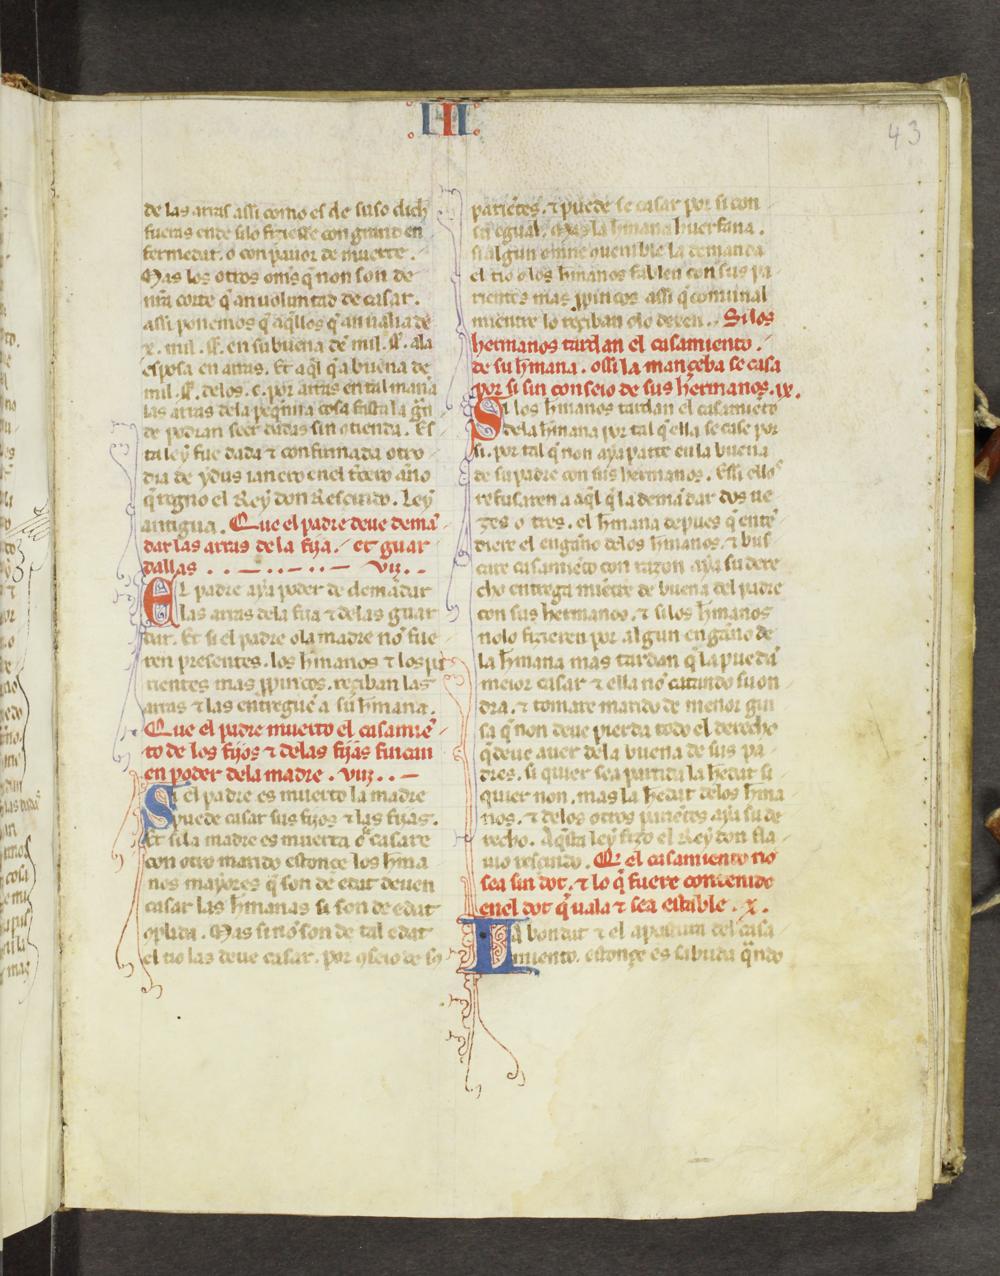 III
43
de las arras assi como es de suso dich
fueras ende si lo fiziesse con grand en
fermedat. o con pauor de muerte.
Mas los otros om̃s q̃ non son de
nr̃a corte q̃ an uoluntad de casar.
assi ponemos q̃ aq̃llos q̃ an ualia de
x. mil. ss̃. en su buena de mil. ss̃. a la
esposa en arras. Et aq̃l q̃ a buena de
mil. ss̃. de los. c. por arras en tal mana
las arras de la peq̃nna cosa fasta la gñ
de podran seer dadas sin otienda. Es
ta ley fue dada ⁊ confirmada otro
dia de ydus ianero en el t̃cero anno
q̃ regno el Rey don Rescindo. Ley
antigua. Que el padre deue demã
dar las arras de la fija. et guar
dallas . . — . . — . . — vii. .
El padre aya poder de demãdar
las arras de la fija ⁊ de las guar
dar. Et si el padre o la madre nõ fue
ren presentes. los h̃manos ⁊ los pa
rientes mas ꝓpincos. reçiban las
arras ⁊ las entreguẽ a su h̃mana.
Que el padre muerto el casamiẽ
to de los fijos ⁊ de las fijas finca
en poder de la madre . viii . . —
Si el padre es muerto la madre
puede casar sus fijos ⁊ las fijas.
Et si la madre es muerta o casare
con otro marido estonce los h̃ma
nos mayores q̃ son de edat deuen
casar las h̃manas si son de edat
oplida. Mas si nõ son de tal edat
el tio las deue casar. por ꝯseio de so
pariẽtes. ⁊ puede se casar por si con
su egual. Mas la h̃mana huerfana.
si algun omne ꝯuenible la demanda
el tio o los h̃manos fablen con sus pa
rientes mas ꝓpincos assi q̃ comunal
mientre lo reçiban o lo dexen. Si los
hermanos tardan el casamiento.
de su h̃mana. o si la mançeba se casa
por si sin conseio de sus hermanos. ix.
Si los h̃manos tardan el casamiẽto
de la h̃mana por tal q̃ ella se case por
si. por tal q̃ non aya parte en la buena
de su padre con sus hermanos. E si ellos
refusaren a aq̃l q̃ la demãdar dos ue
zes o tres. el h̃mana depues q̃ entẽ
diere el enganno de los h̃manos. ⁊ bus
care casamiẽto con razon aya su dere
cho entrega miẽtre de buena del padre
con sus hermanos. ⁊ si los h̃manos
no lo fizieren por algun enganno de
la h̃mana mas tardan q̃ la puedã
meior casar ⁊ ella nõ catando su on
dra. ⁊ tomare marido de menor gui
sa q̃ non deue pierda todo el derecho
q̃ deue auer de la buena de sus pa
dres. si quier sea partida la hedat si
quier non. mas la hedat de los h̃ma
nos. ⁊ de los otros pariẽtes aya su de
recho. Aq̃sta ley fizo el Rey don fla
uio rescindo. Q̃ el casamiento nõ
sea sin dot. ⁊ lo q̃ fuere contenido
en el dot q̃ uala ⁊ sea estable . x .
La bondat ⁊ el apostura del casa
miento. estonçe es sabuda q̃ndo